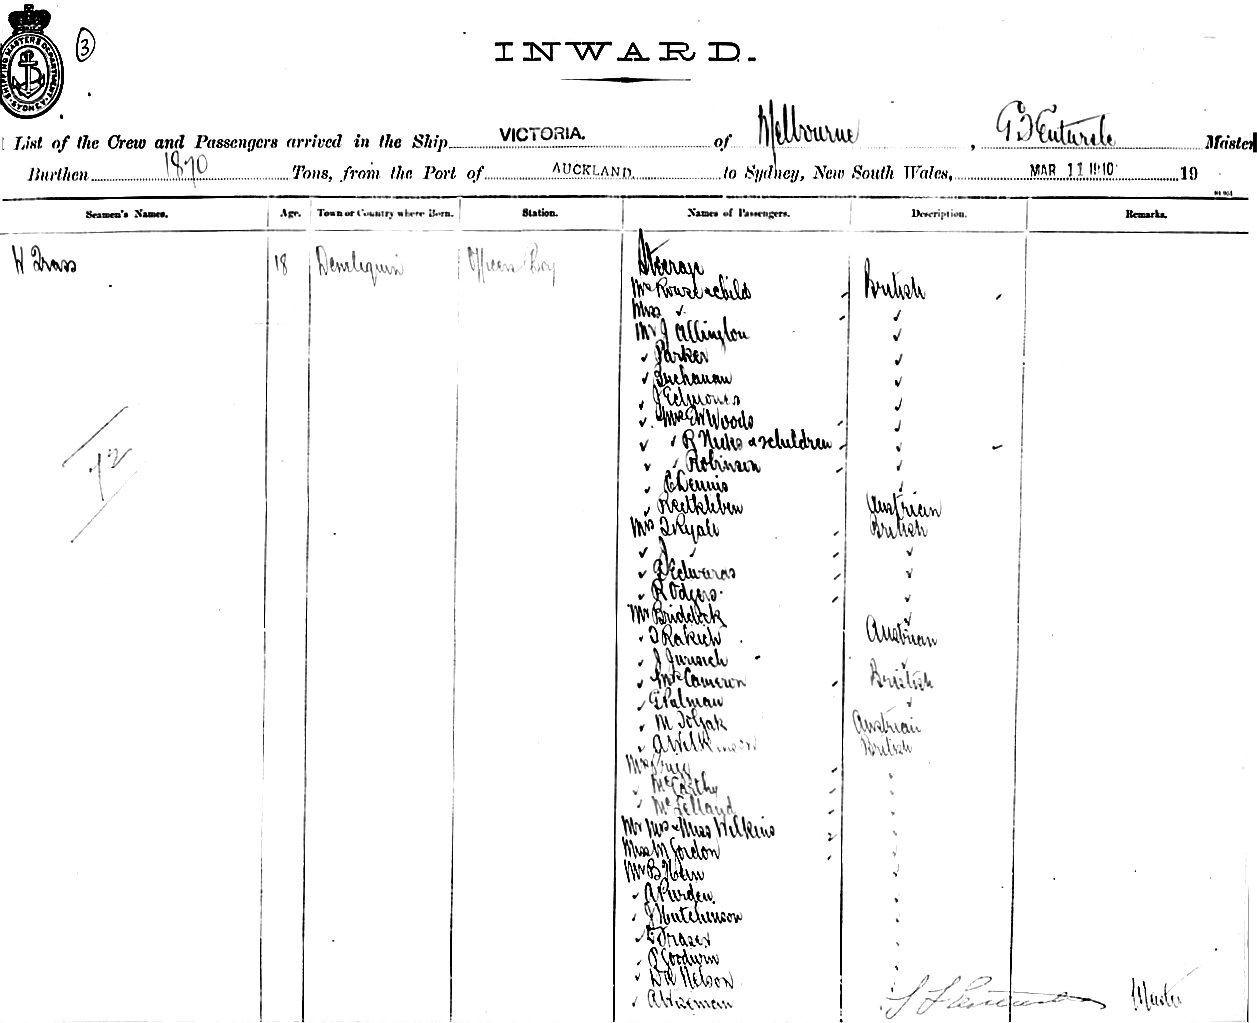 SHIPPING MASTER'S DEPARTMENT SYDNEY
3
INWARD.
List of the Crew and Passengers arrived in the Ship VICTORIA. of Melbourne, Master
Burthen 1870 Tons, from the Port of AUCKLAND. to Sydney, New South Wales, MAR 11 1910 19
Seamen's Names. Age. Town or Country where Born. Station. Names of Passengers. Description. Remarks.
18 Deniliquin Officers Boy Steerage
Mrs Rouse & child British
Miss
Mr J Allington
Parker
Buchanan
J Edmonds
Mrs EW Woods
R Nicks & children
Robinson
C Dennis
Austrian
Mrs Ryall British
Edwards
R Odgers
Mr
Rakich Austrian
J Jurisich
Mrs Cameron British
M Austrian
A Wilkinson British
Mrs Price
McCarthy
McLelland
Mr Mrs & Miss Wilkins
Miss M Gordon
Mr B Hein
A Purden
J Hutchinson
Fraser
P Goodwin
Nelson
A Wiseman
Master
72